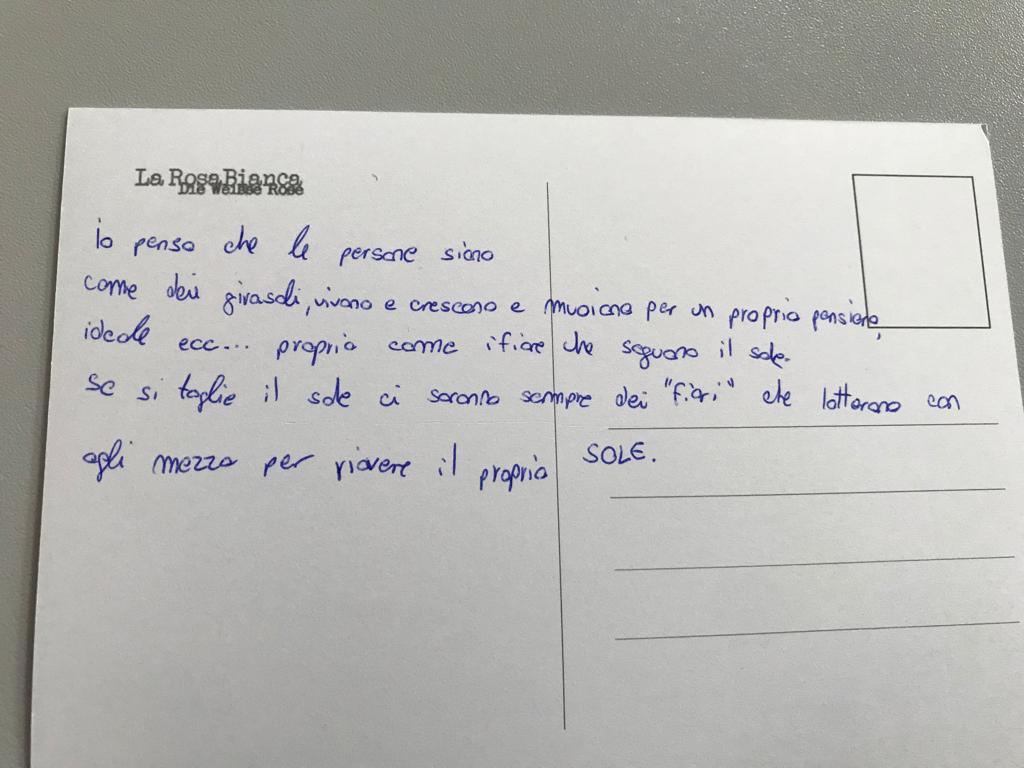 La Rosa Bianca
Die Weisse Rose
Io penso che le persone siano
come dei girasoli, vivono e crescono e muoiono per un proprio pensiero,
ideale ecc... proprio come i fiori che seguono il sole.
Se si toglie il sole ci saranno sempre dei "fiori" che lotterano con
ogli mezzo per riavere il proprio SOLE.